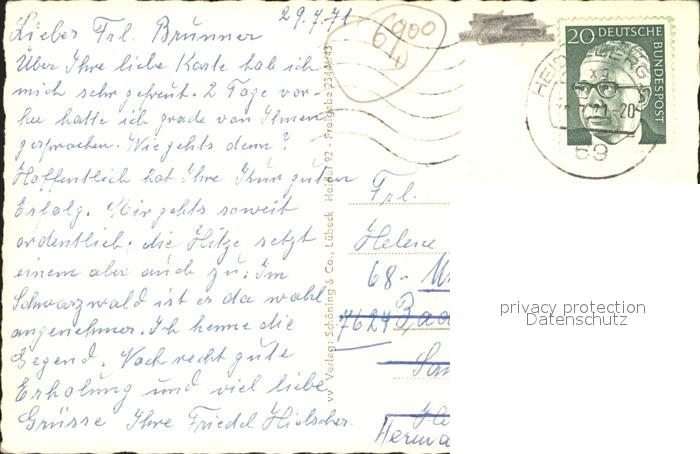 29.7.71
Liebes Frl. Brunner
Über Ihre liebe Karte hab ich
mich sehr gefreut. 2 Tage vor-
her hatte ich grade von Ihnen
gesprochen. Wie gehts denn?
Hoffentlich hat Ihre Kur guten
Erfolg. Mir gehts soweit
ordentlich. die Hitze setzt
einem aber auch zu. Im
Schwarzwald ist es da wohl
angenehmer. Ich kenne die
Gegend. Noch recht gute
Erholung und viel liebe
Grüsse Ihre Friedel Hielscher.
vv Verlag: Schöning & Co., Lübeck Heidel 92 - Freigabe
6900
20 DEUTSCHE
BUNDESPOST
HEIDELBERG
-20
69
Frl.
Helene
68-
7624
Herma
privacy protection
Datenschutz